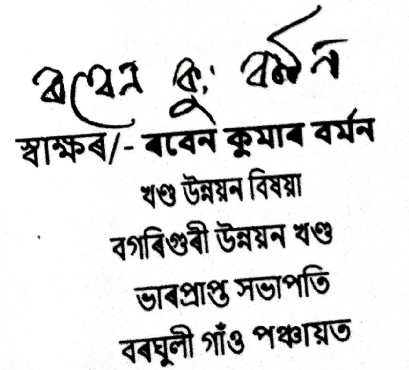 ৰবেন কু: বৰ্মন
স্বাক্ষৰ/- ৰবেন কুমাৰ বৰ্মন
খণ্ড উন্নয়ন বিষয়া
বগৰিগুৰী উন্নয়ন খণ্ড
ভাৰপ্ৰাপ্ত সভাপতি
বৰঘুলী গাঁও পঞ্চায়ত